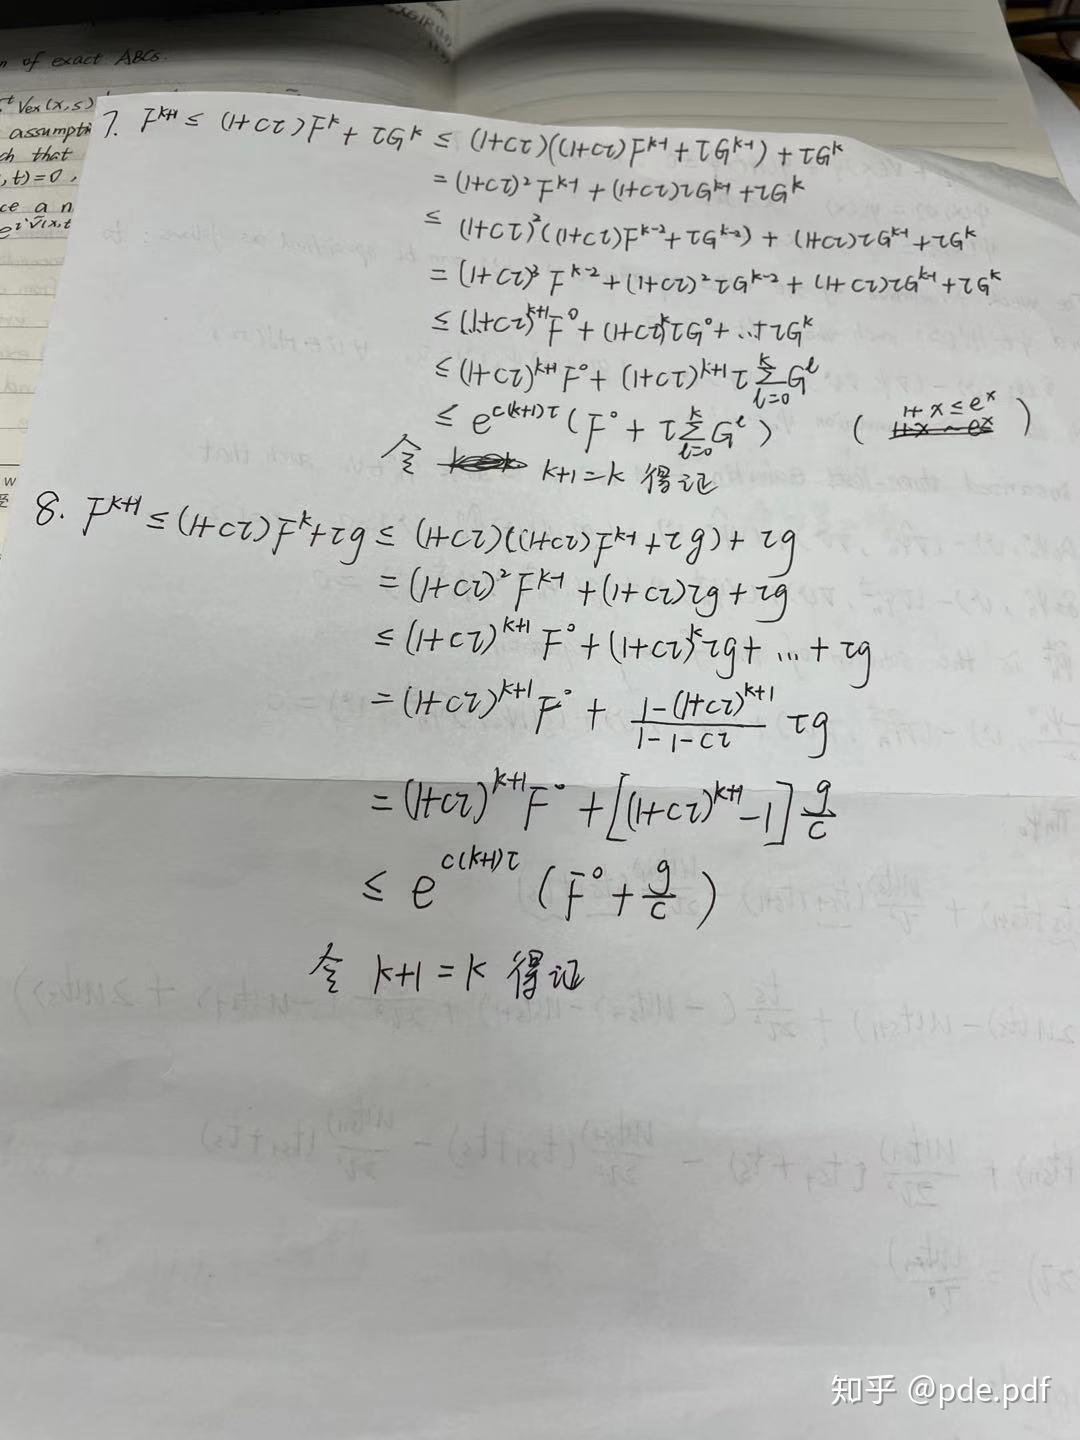 n of exact ABCs.
Vex(x,s)
assumpti
ch that
,t)=0,
ce a n
7. F^{k+1} ≤ (1+cτ)F^k + τG^k ≤ (1+cτ)((1+cτ)F^{k-1} + τG^{k-1}) + τG^k
= (1+cτ)^2 F^{k-1} + (1+cτ)τG^{k-1} + τG^k
≤ (1+cτ)^2((1+cτ)F^{k-2} + τG^{k-2}) + (1+cτ)τG^{k-1} + τG^k
= (1+cτ)^3 F^{k-2} + (1+cτ)^2 τG^{k-2} + (1+cτ)τG^{k-1} + τG^k
≤ (1+cτ)^{k+1}F^0 + (1+cτ)^k τG^0 + ... + τG^k
≤ (1+cτ)^{k+1}F^0 + (1+cτ)^{k+1} τ \sum_{l=0}^{k} G^l
≤ e^{c(k+1)τ} (F^0 + τ \sum_{l=0}^{k} G^l) ( 1+x ≤ e^x )
令 k+1=k 得证
8. F^{k+1} ≤ (1+cτ)F^k + τg ≤ (1+cτ)((1+cτ)F^{k-1} + τg) + τg
= (1+cτ)^2 F^{k-1} + (1+cτ)τg + τg
≤ (1+cτ)^{k+1} F^0 + (1+cτ)^k τg + ... + τg
= (1+cτ)^{k+1} F^0 + \frac{1-(1+cτ)^{k+1}}{1-1-cτ} τg
= (1+cτ)^{k+1} F^0 + [(1+cτ)^{k+1} -1] \frac{g}{c}
≤ e^{c(k+1)τ} (F^0 + \frac{g}{c})
令 k+1=k 得证
知乎 @pde.pdf